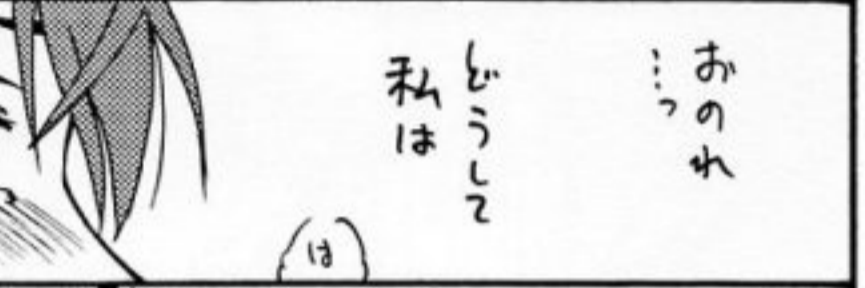 おのれ
…っ
どうして
私は
は